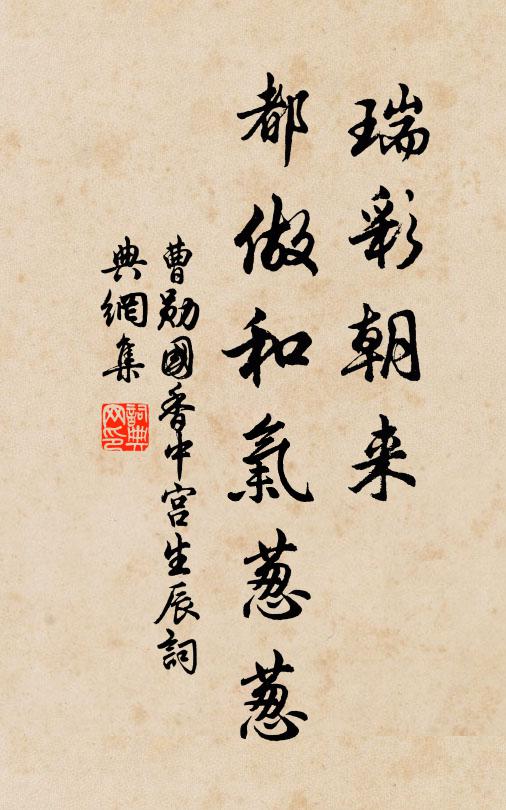 瑞彩朝来
都做和氣葱葱
曹勛國香中宫生辰詞
典網集
詞典网印